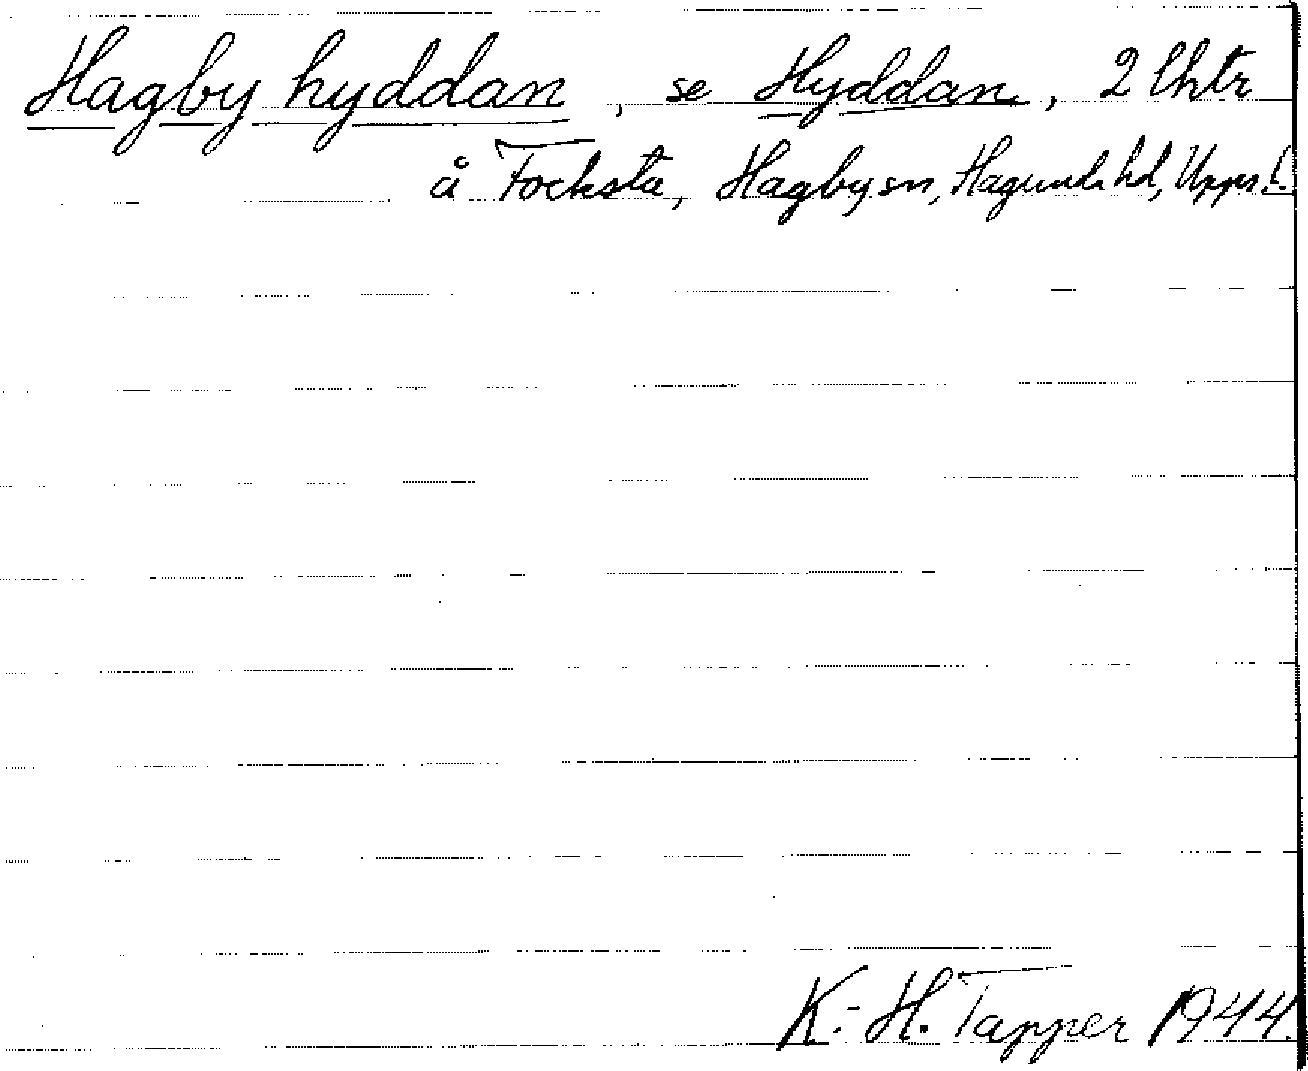 Hagby hyddan, se Hyddan, 2 lhtr
å Focksta, Hagby sn, Hagunda hd, Upps. l.
K.-H. Tapper 1944.